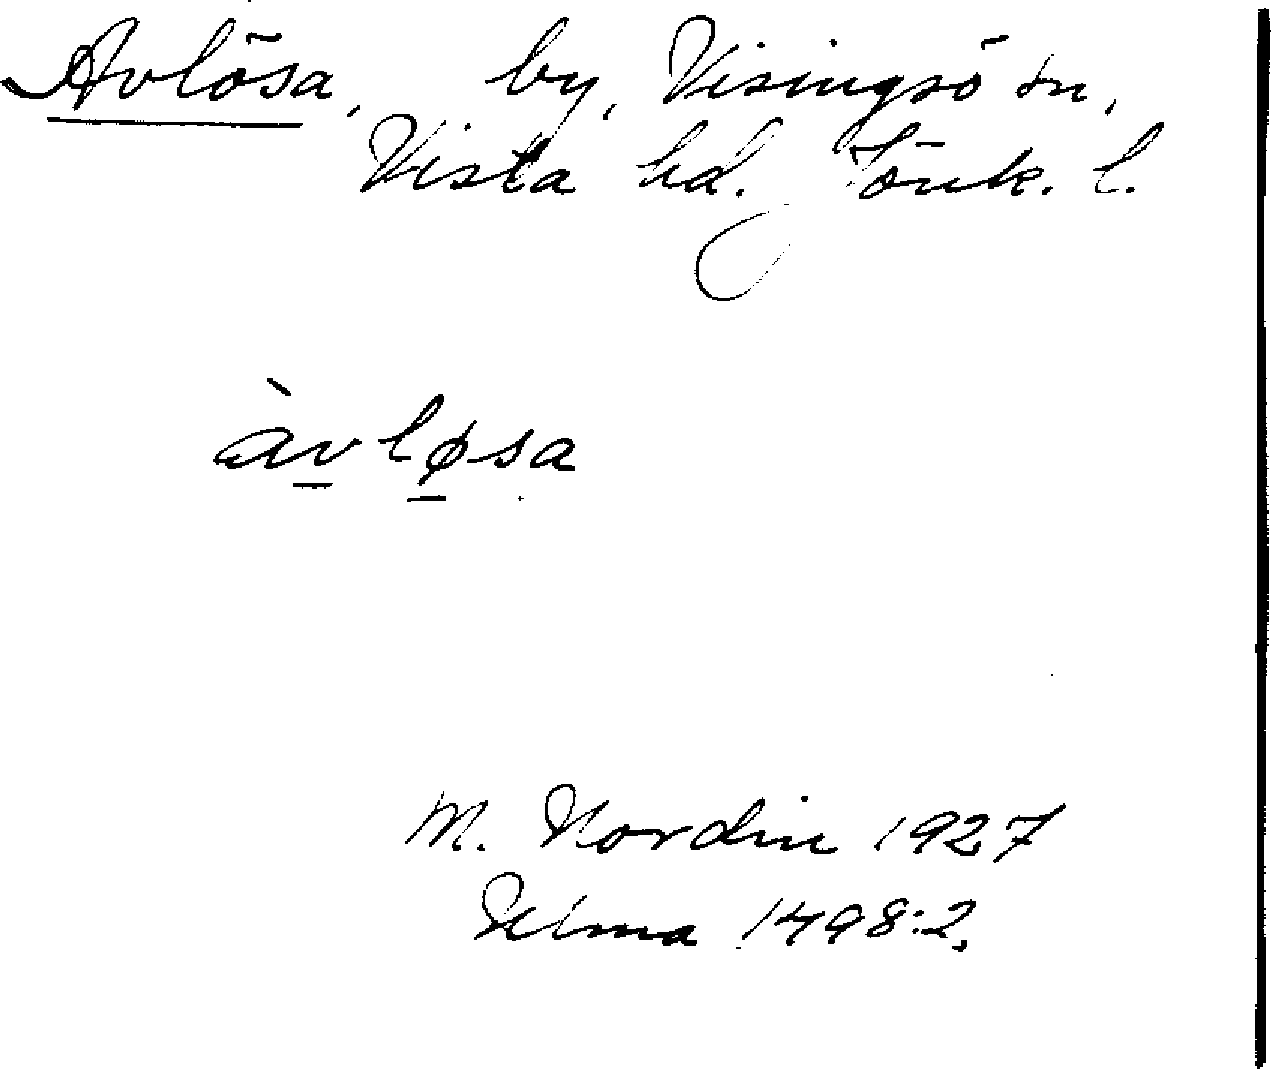 Avlösa, by, Visingsö sn,
Vista hd. Jönk. l.
àvløsa
M. Nordin 1927
Ulma 1498:2,